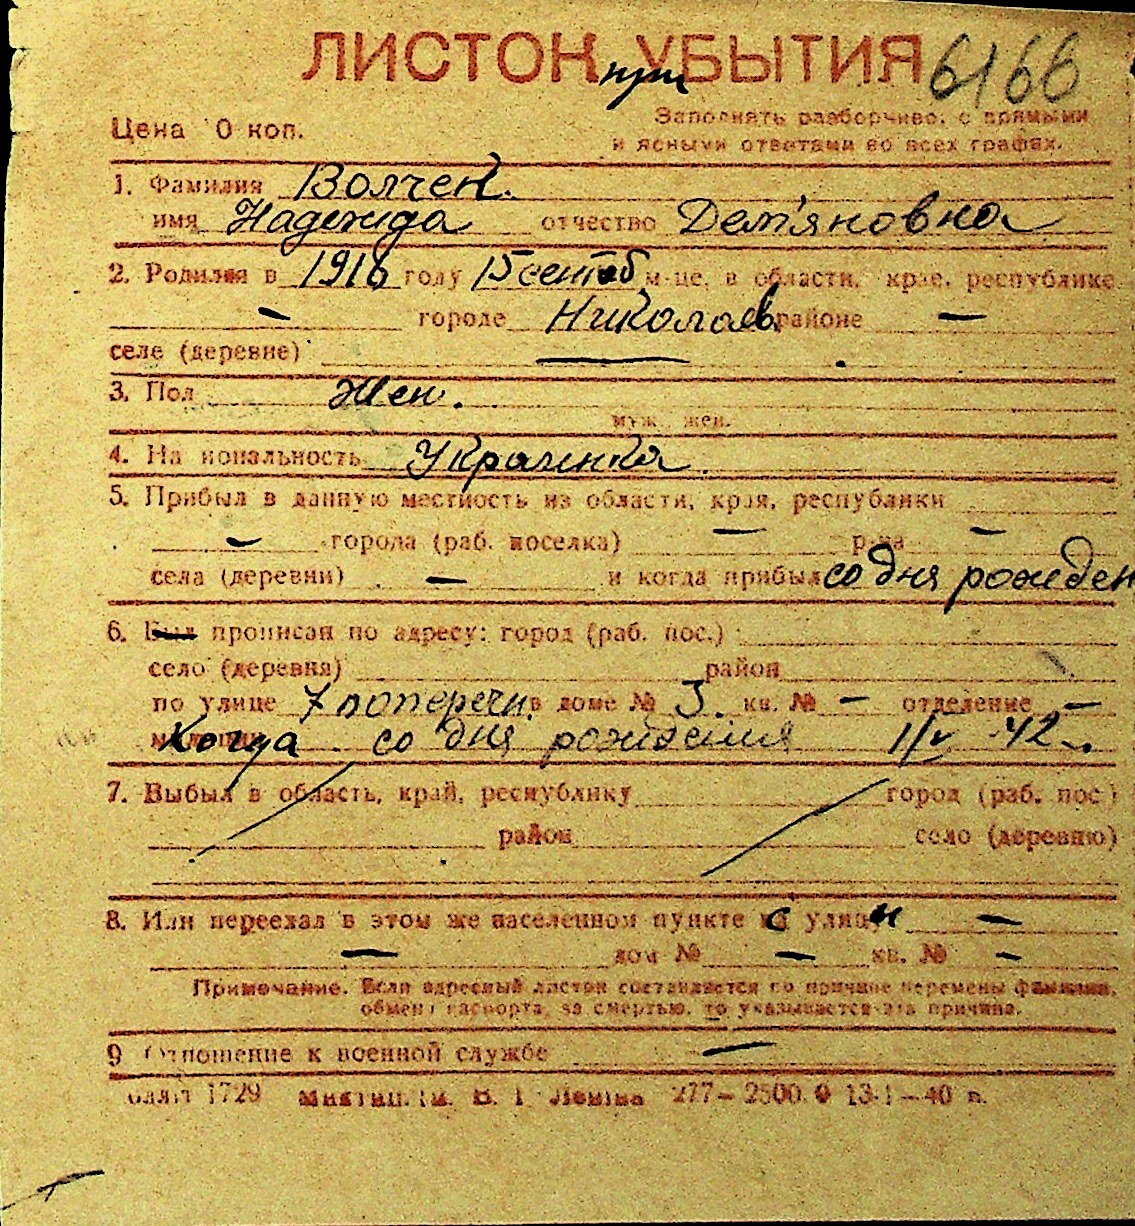 ЛИСТОК при УБЫТИЯ 6166
Цена 0 коп.
Заполнять разборчиво, с прямыми
и ясными ответами во всех графах.
1. Фамилия Волчек.
имя Надежда отчество Дем'яновна
2. Родился в 1916 году 15 сентяб м-це, в области, крае, республике
— городе Николаев районе —
селе (деревне) —
3. Пол Жен.
муж. жен.
4. Национальность Украинка
5. Прибыл в данную местность из области, края, республики
— города (раб. поселка) — р-на —
села (деревни) — и когда прибыл со дня рожден
6. Был прописан по адресу: город (раб. пос.)
село (деревня) район
по улице 7 поперечн. в доме № 3. кв. № — отделение —
Когда со дня рождения 1/V 42
7. Выбыл в область, край, республику город (раб. пос.)
район село (деревню)
8. Или переехал в этом же населенном пункте с улицы —
— дом № — кв. № —
Примечание. Если адресный листок составляется по причине перемены фамилии,
обмена паспорта, за смертью, то указывается эта причина.
9 Отношение к военной службе —
1729 им. В. І Леніна 277—2500 13-І—40 в.